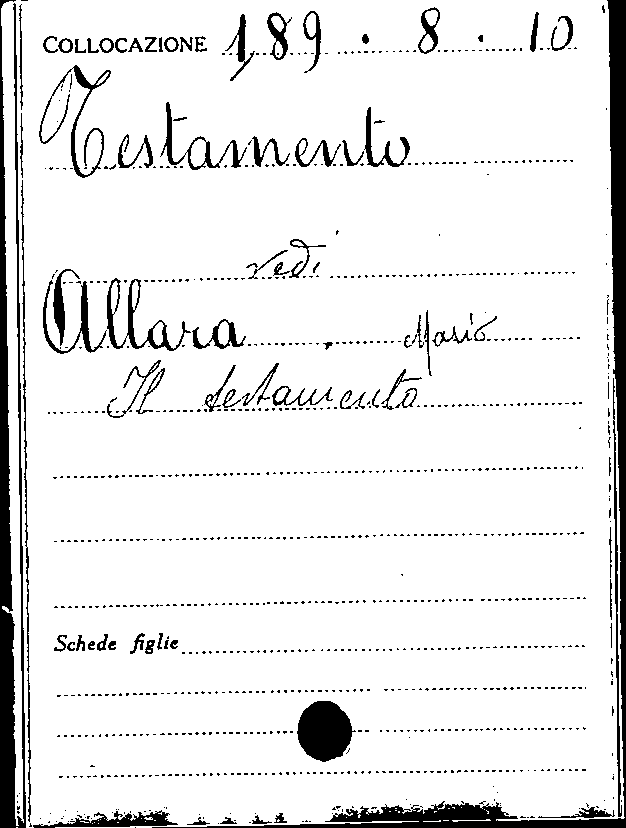 COLLOCAZIONE 189.8.10
Testamento
vedi
Allara, Mario
Il testamento
Schede figlie